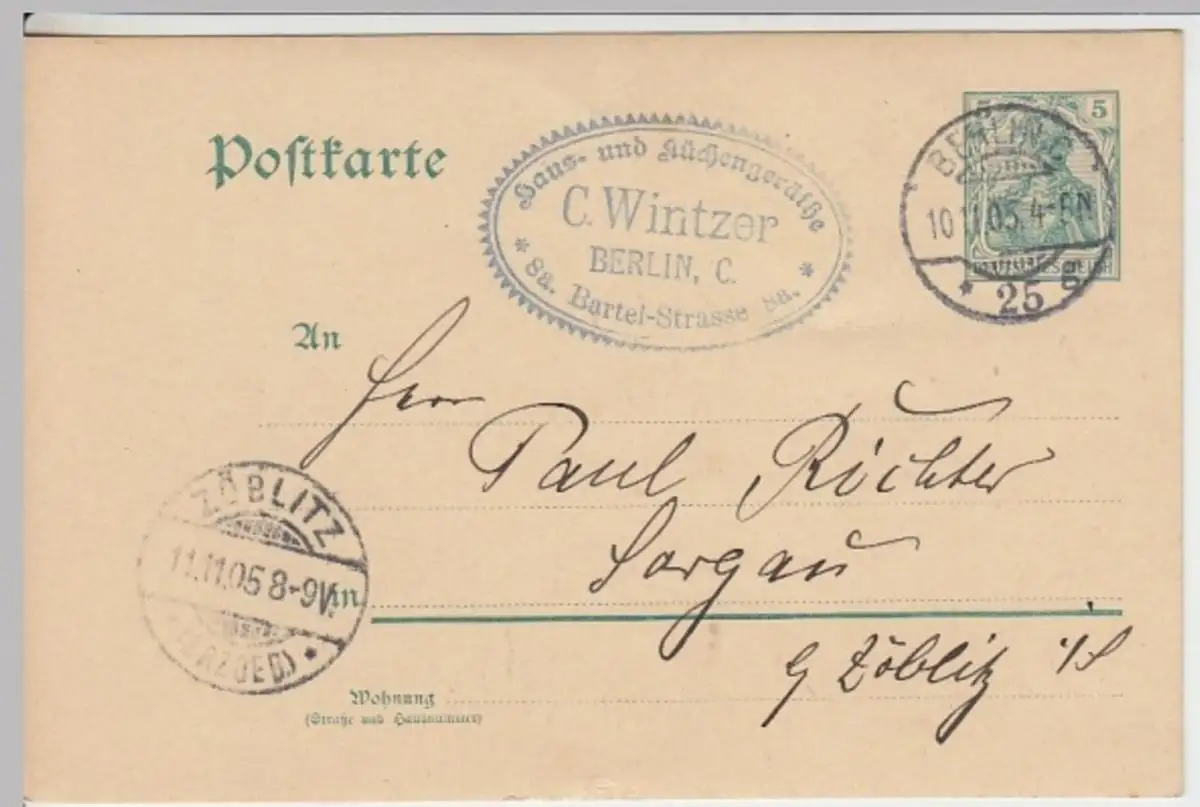 Postkarte
Haus- und Küchengeräthe
C. Wintzer
BERLIN, C.
* 8a. Bartel-Strasse 8a. *
5 5
BERLIN, C.
10.11.05. 4-5N
* 25 g
An
Herrn
Paul Richter
Sorgau
ZÖBLITZ
11.11.05 8-9V.
(ERZGEB.) *
in
b/ Zöblitz i/S
Wohnung
(Straße und Hausnummer)